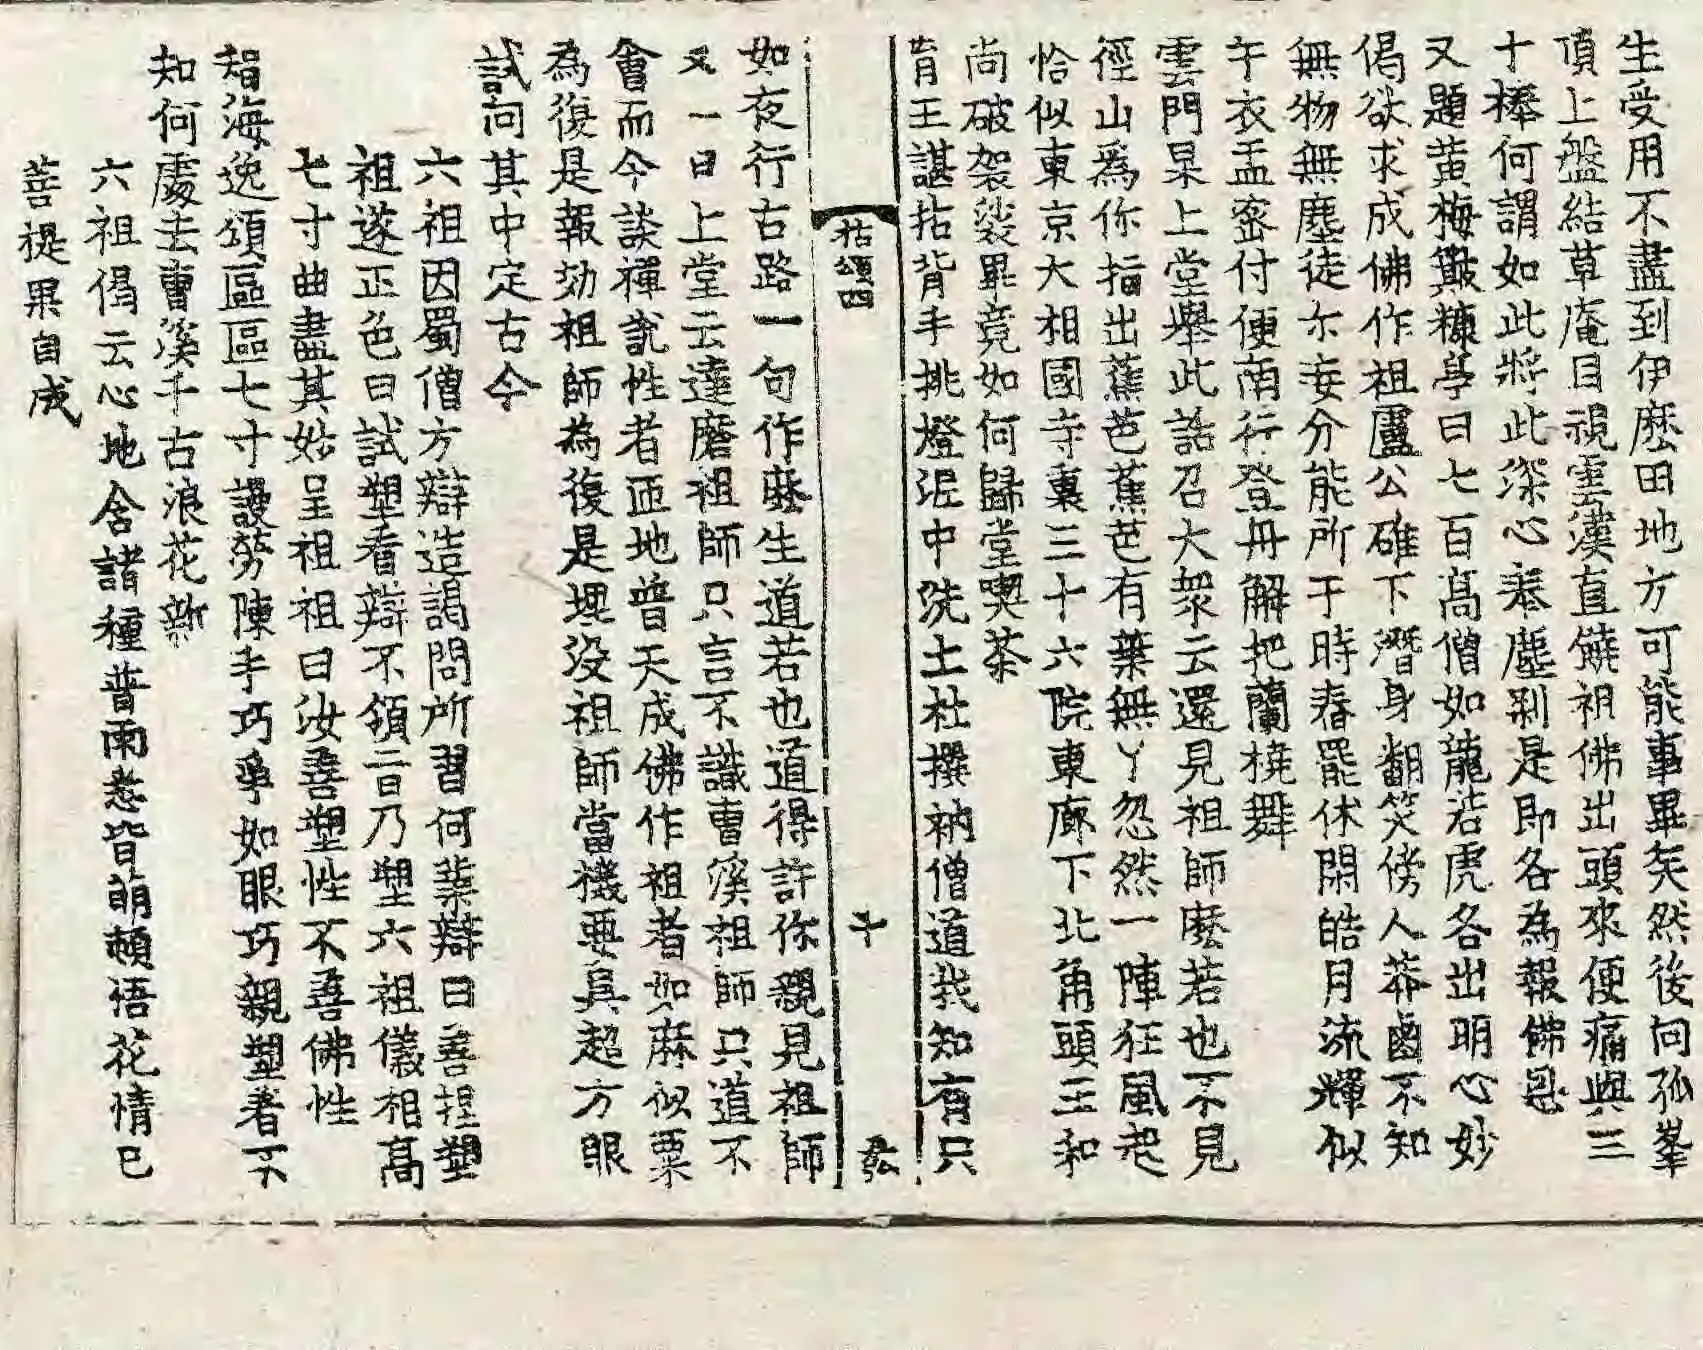 生受用不盡到伊麽田地方可能事畢矣然後向孤峯
頂上盤結草庵目視雲漢直饒祖佛出頭來便痛與三
十棒何謂如此將此深心奉塵刹是即各為報佛恩
又題黄梅簸糠亭曰七百髙僧如龍若虎各出明心妙
偈欲求成佛作祖盧公碓下潛身翻笑傍人莽鹵不知
無物無塵徒尓妄分能所于時春罷休閑皓月流輝似
午衣盂宻付便南行登舟解把蘭橈舞
雲門杲上堂舉此話召大衆云還見祖師麽若也不見
徑山爲你指出蕉芭蕉芭有葉無丫忽然一陣狂風起
恰似東京大相國寺裏三十六院東廊下北角頭王和
尚破袈裟畢竟如何歸堂喫茶
育王諶拈背手挑燈泥中洗土杜撰衲僧道我知有只
拈頌四 十
如夜行古路一句作麽生道若也道得許你親見祖師
又一日上堂云達磨祖師只言不識曹溪祖師只道不
會而今談禪說性者匝地普天成佛作祖者如麻似粟
為復是報効祖師為復是埋没祖師當機要具超方眼
試向其中定古今
六祖因蜀僧方辯造謁問所習何業辯曰善捏塑
祖遂正色曰試塑看辯不領二日乃塑六祖儀相髙
七寸曲盡其妙呈祖祖曰汝善塑性不善佛性
智海逸頌區區七寸謾勞陳手巧爭如眼巧親塑着不
知何處去曹溪千古浪花新
六祖偈云心地含諸種普雨悉皆萌頓悟花情已
菩提果自成